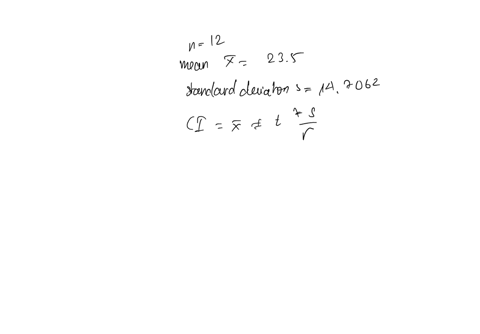 n = 12
mean x̄ = 23.5
standard deviaton s = 14.7062
CI = x̄ ± t * s / r